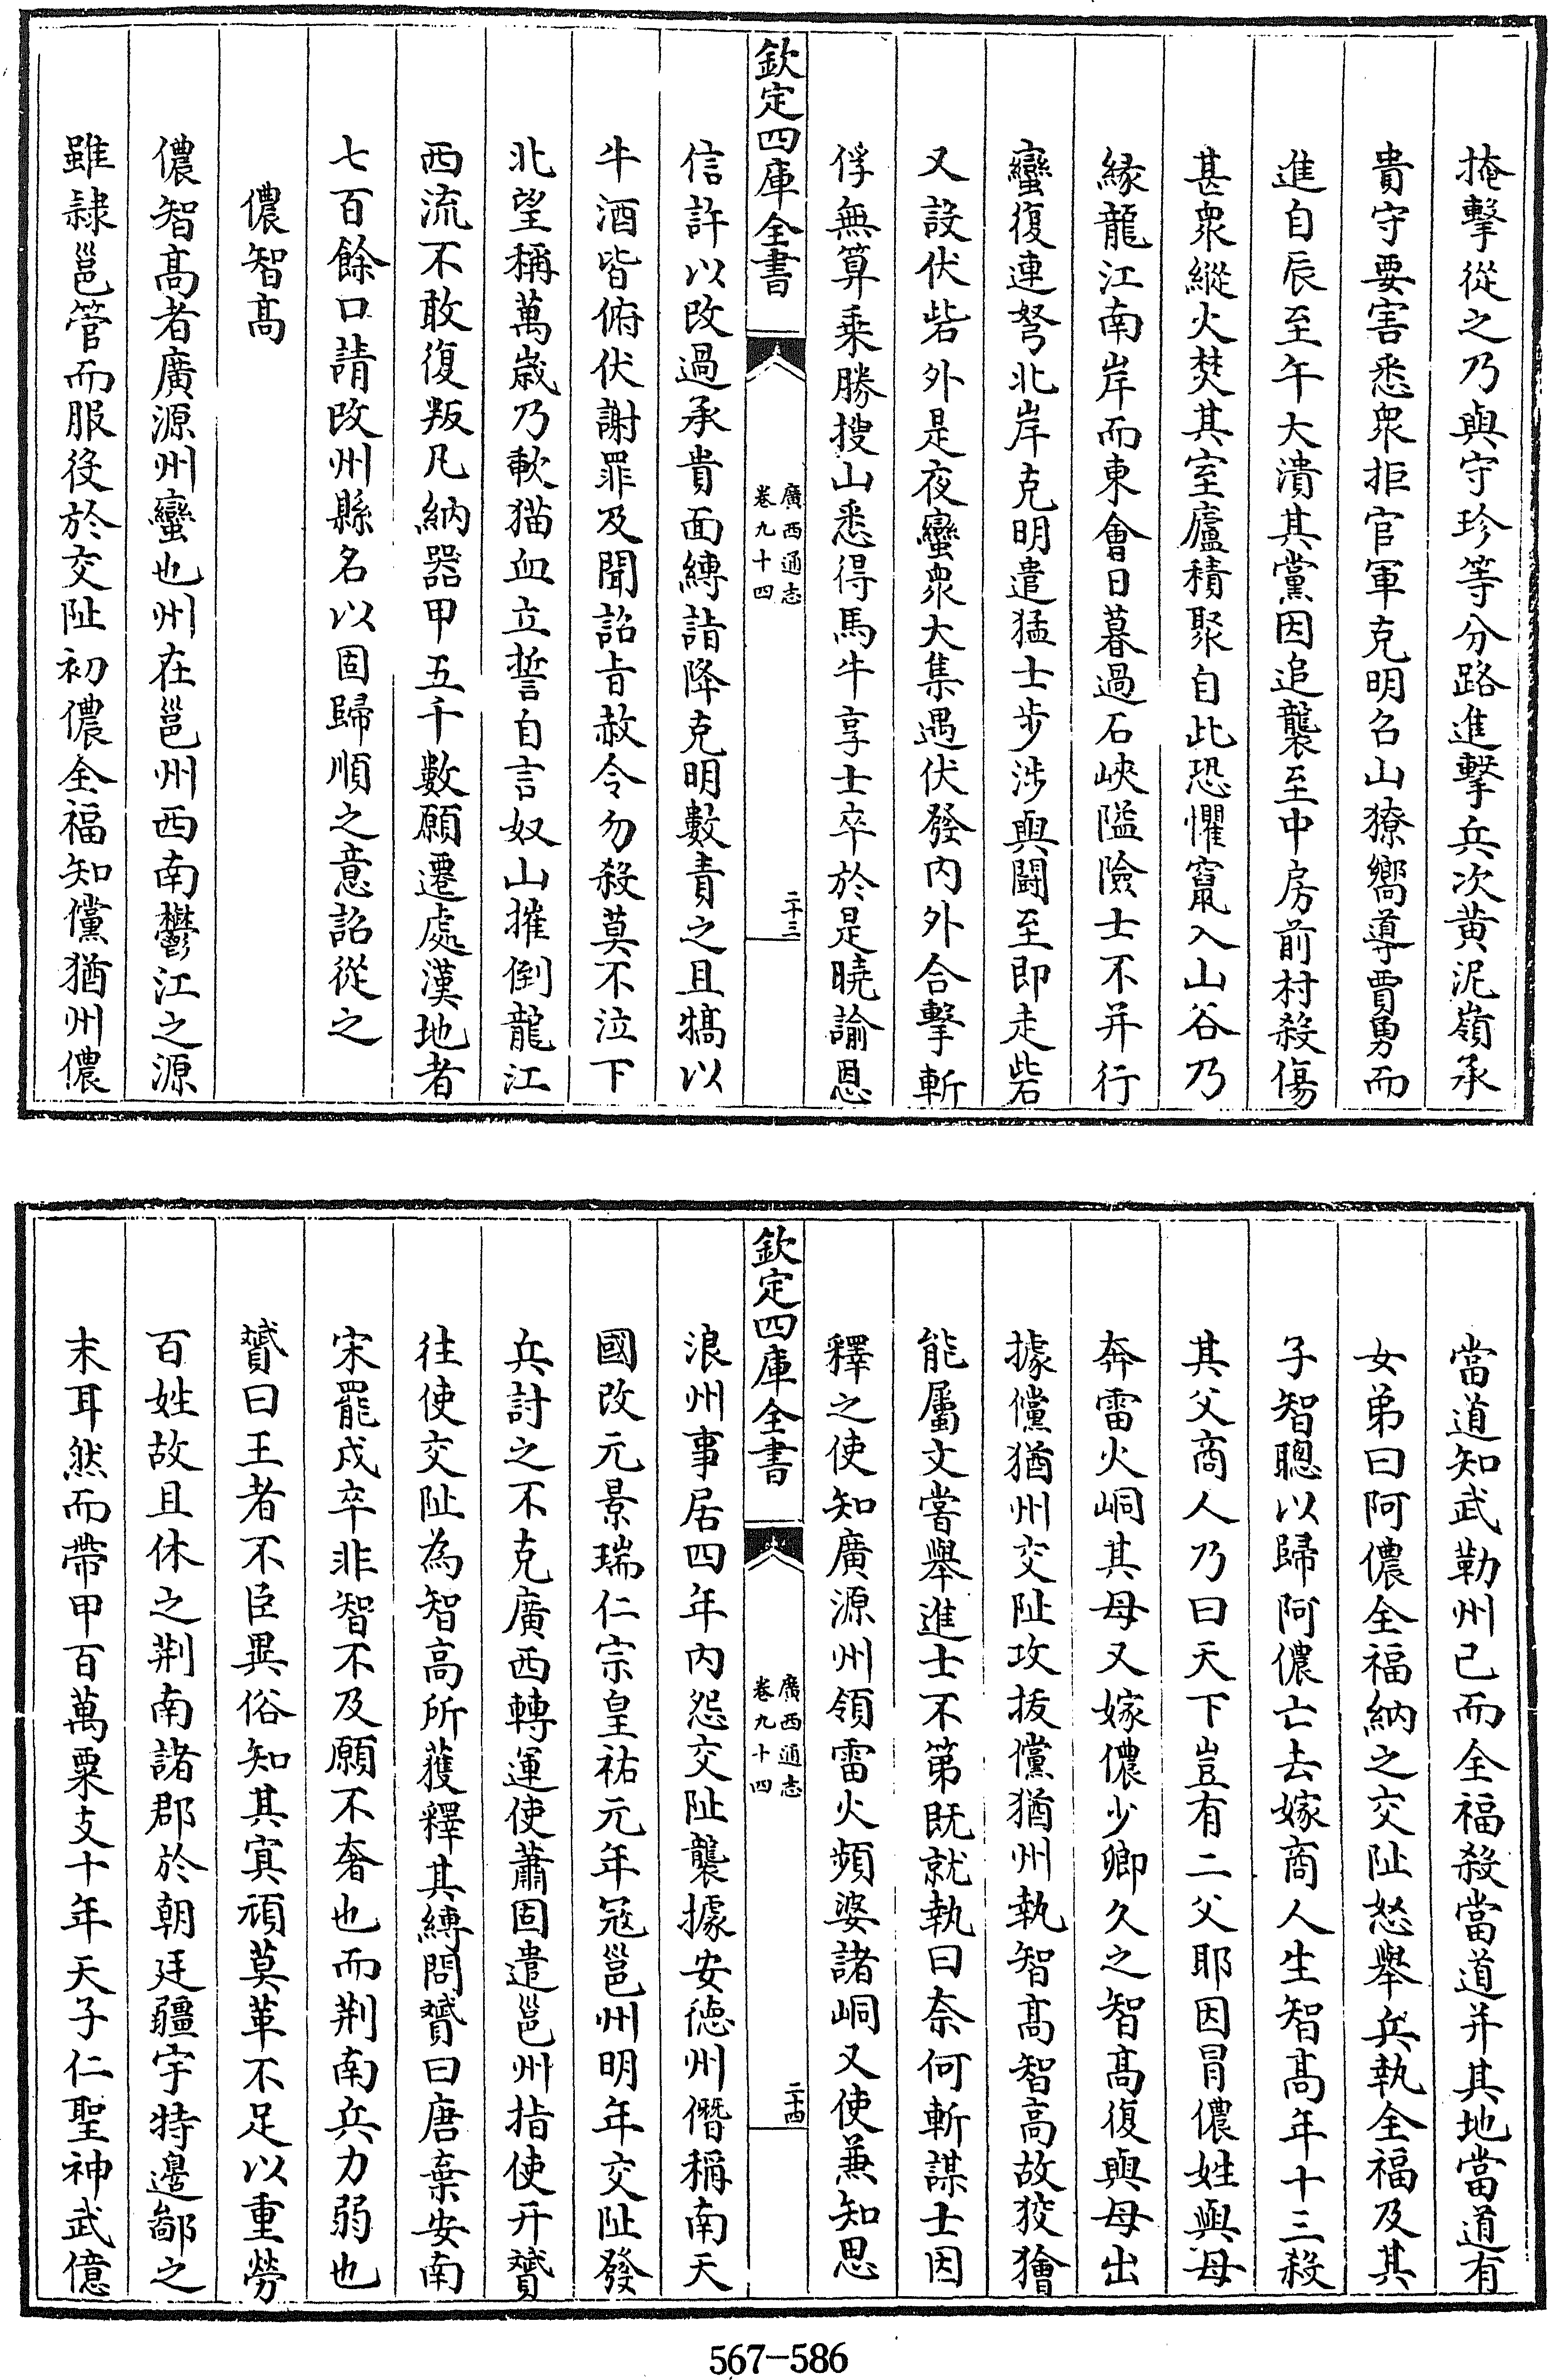 掩擊從之乃與守珍等分路進擊兵次黄泥嶺承
貴守要害悉衆拒官軍克明召山獠嚮導賈勇而
進自辰至午大潰其黨因追襲至中房前村殺傷
甚衆縱火焚其室廬積聚自此恐懼竄入山谷乃
緣龍江南岸而東會日暮過石峽隘險士不并行
蠻復連弩北岸克明遣猛士步涉與鬬至即走砦
又設伏砦外是夜蠻衆大集遇伏發内外合擊斬
俘無算乘勝搜山悉得馬牛享士卒於是曉諭恩
欽定四庫全書
廣西通志
卷九十四
二十三
信許以改過承貴面縛詣降克明數責之且犒以
牛酒皆俯伏謝罪及聞詔旨赦令勿殺莫不泣下
北望稱萬歲乃歃猫血立誓自言奴山摧倒龍江
西流不敢復叛凡納器甲五千數願遷處漢地者
七百餘口請改州縣名以固歸順之意詔從之
儂智高
儂智高者廣源州蠻也州在邕州西南鬱江之源
雖隷邕管而服役於交阯初儂全福知儻猶州儂
當道知武勒州已而全福殺當道并其地當道有
女弟曰阿儂全福納之交阯怒舉兵執全福及其
子智聰以歸阿儂亡去嫁商人生智高年十三殺
其父商人乃曰天下豈有二父耶因冒儂姓與母
奔雷火峒其母又嫁儂少卿久之智高復與母出
據儻猶州交阯攻拔儻猶州執智高智高故狡獪
能屬文嘗舉進士不第既就執曰奈何斬謀士因
釋之使知廣源州領雷火頻婆諸峒又使兼知思
欽定四庫全書
廣西通志
卷九十四
二十四
浪州事居四年内怨交阯襲據安徳州僭稱南天
國改元景瑞仁宗皇祐元年冦邕州明年交阯發
兵討之不克廣西轉運使蕭固遣邕州指使亓贇
往使交阯為智高所獲釋其縛問贇曰唐棄安南
宋罷戍卒非智不及願不奢也而荆南兵力弱也
贇曰王者不臣異俗知其寘頑莫革不足以重勞
百姓故且休之荆南諸郡於朝廷疆宇特邊鄙之
末耳然而帶甲百萬粟支十年天子仁聖神武億
567-586